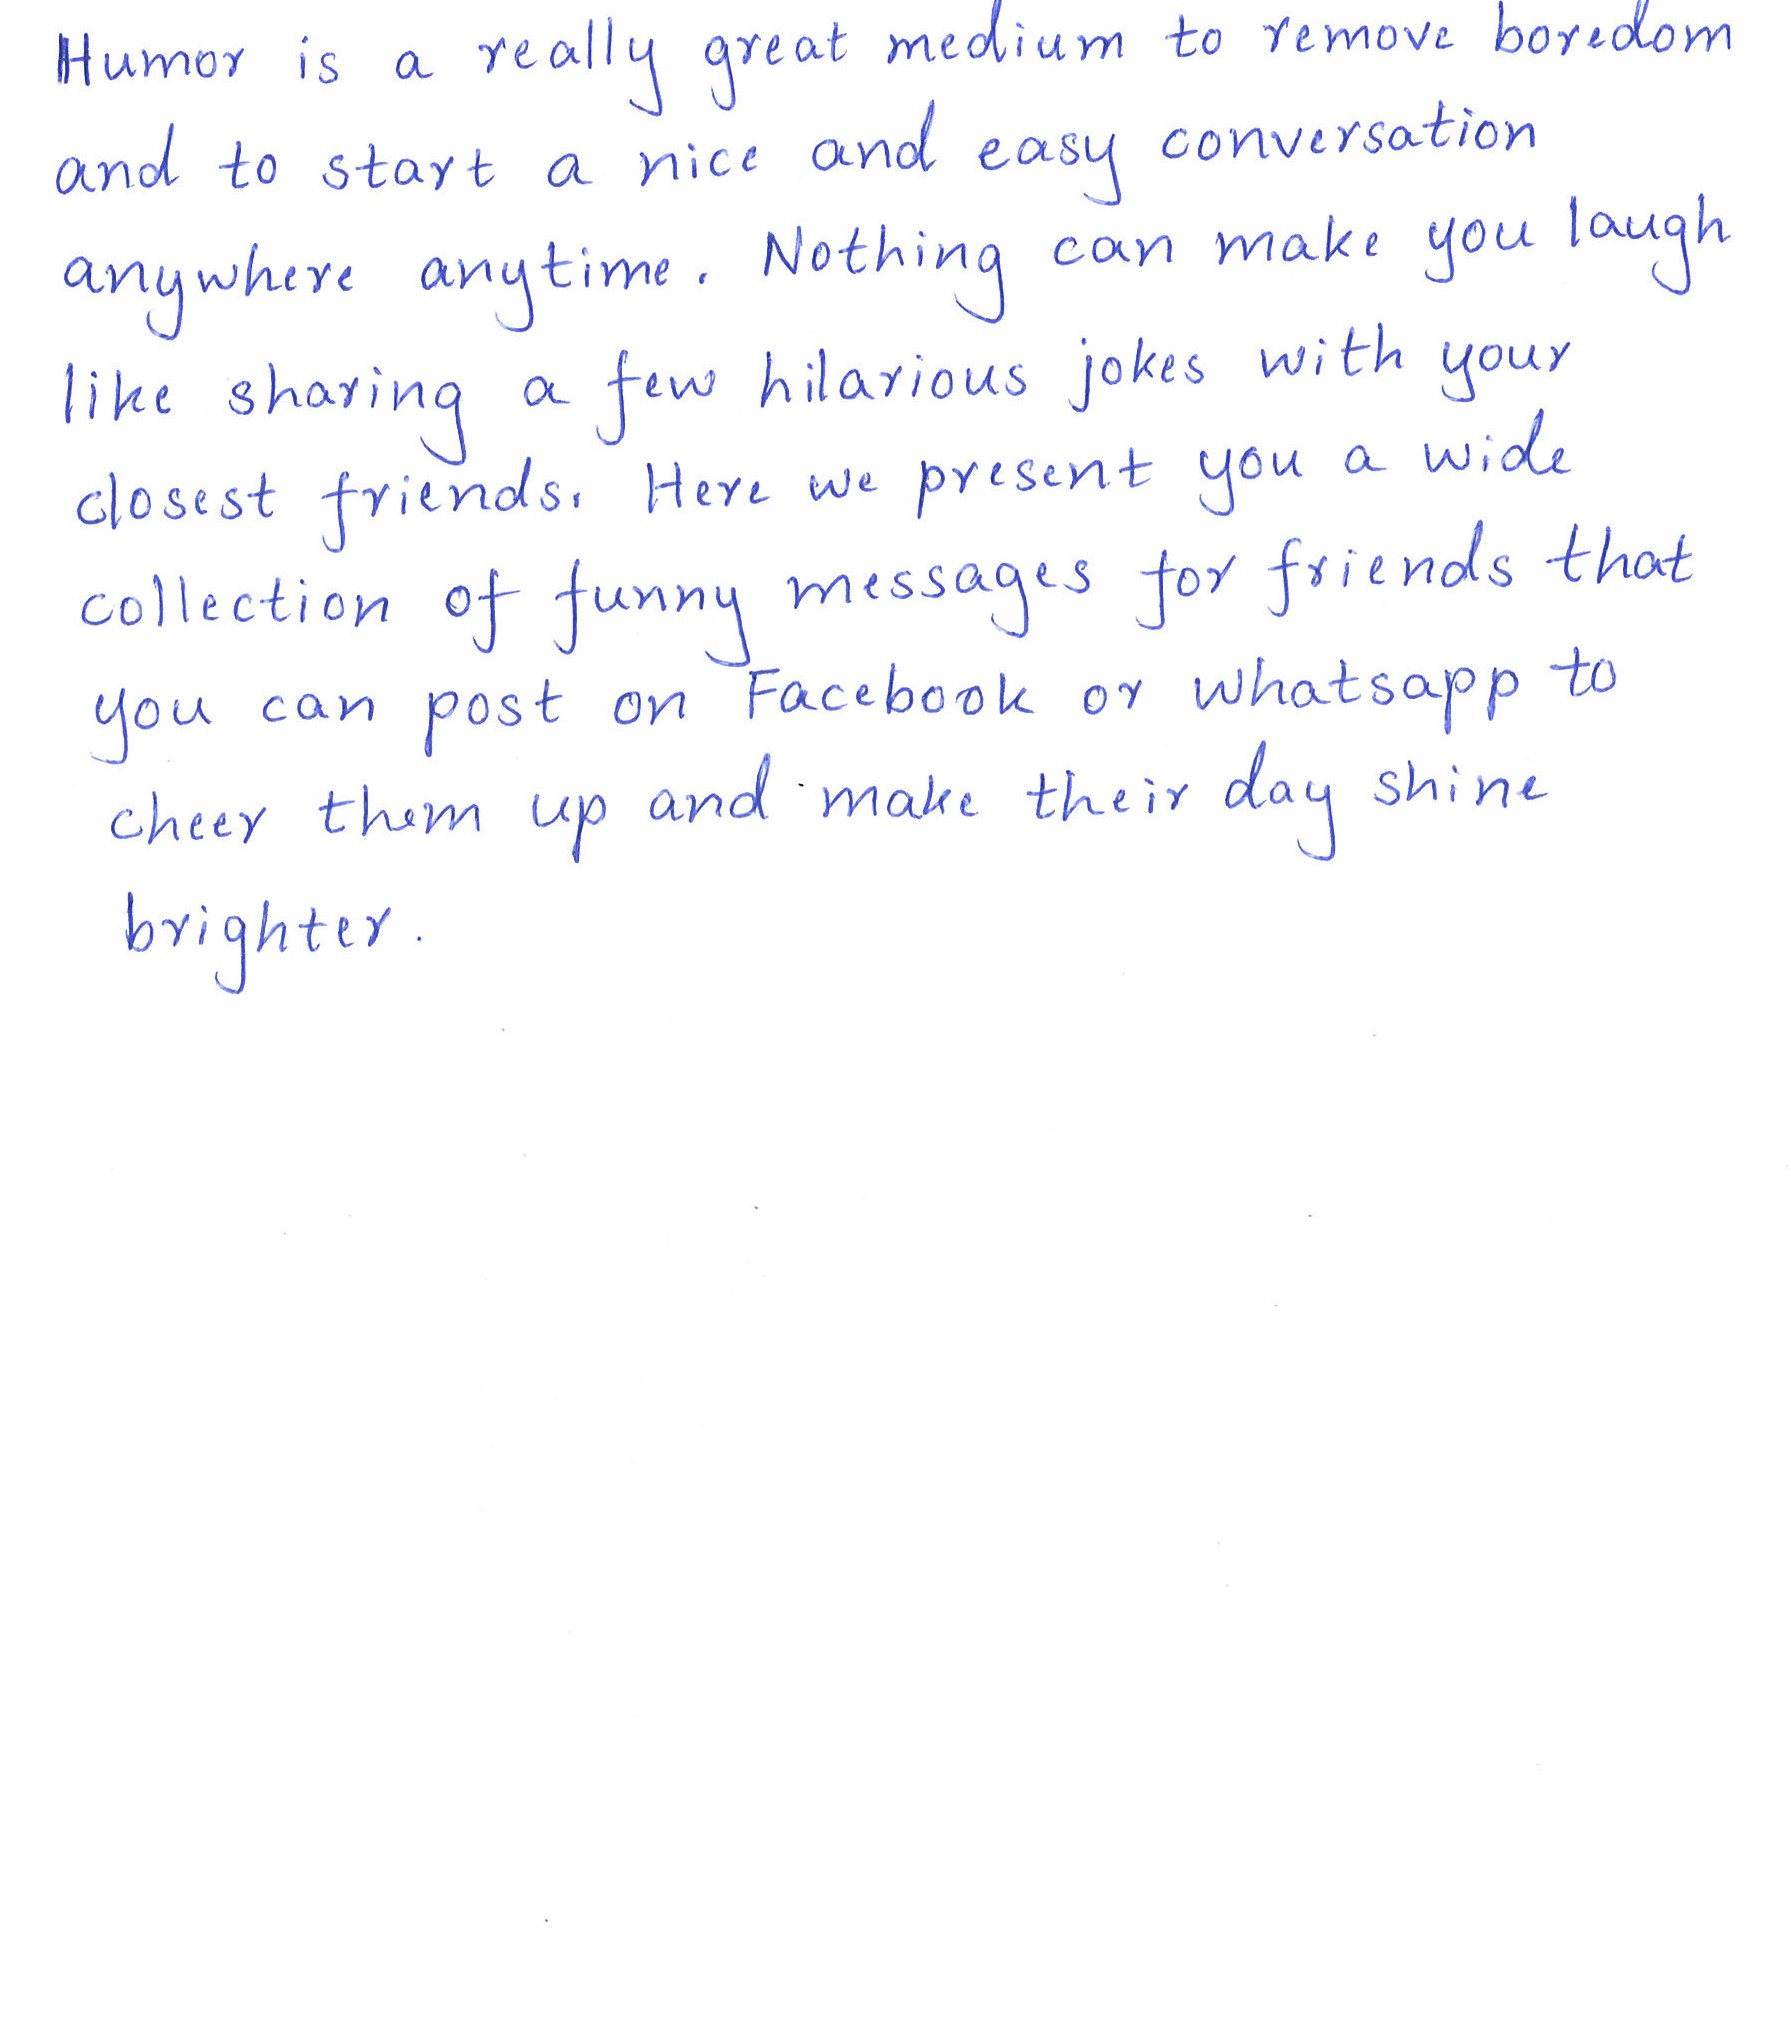 Humor is a really great medium to remove boredom
and to start a nice and easy conversation
anywhere anytime. Nothing can make you laugh
like sharing a few hilarious jokes with your
closest friends. Here we present you a wide
collection of funny messages for friends that
you can post on Facebook or whatsapp to
cheer them up and make their day shine
brighter.